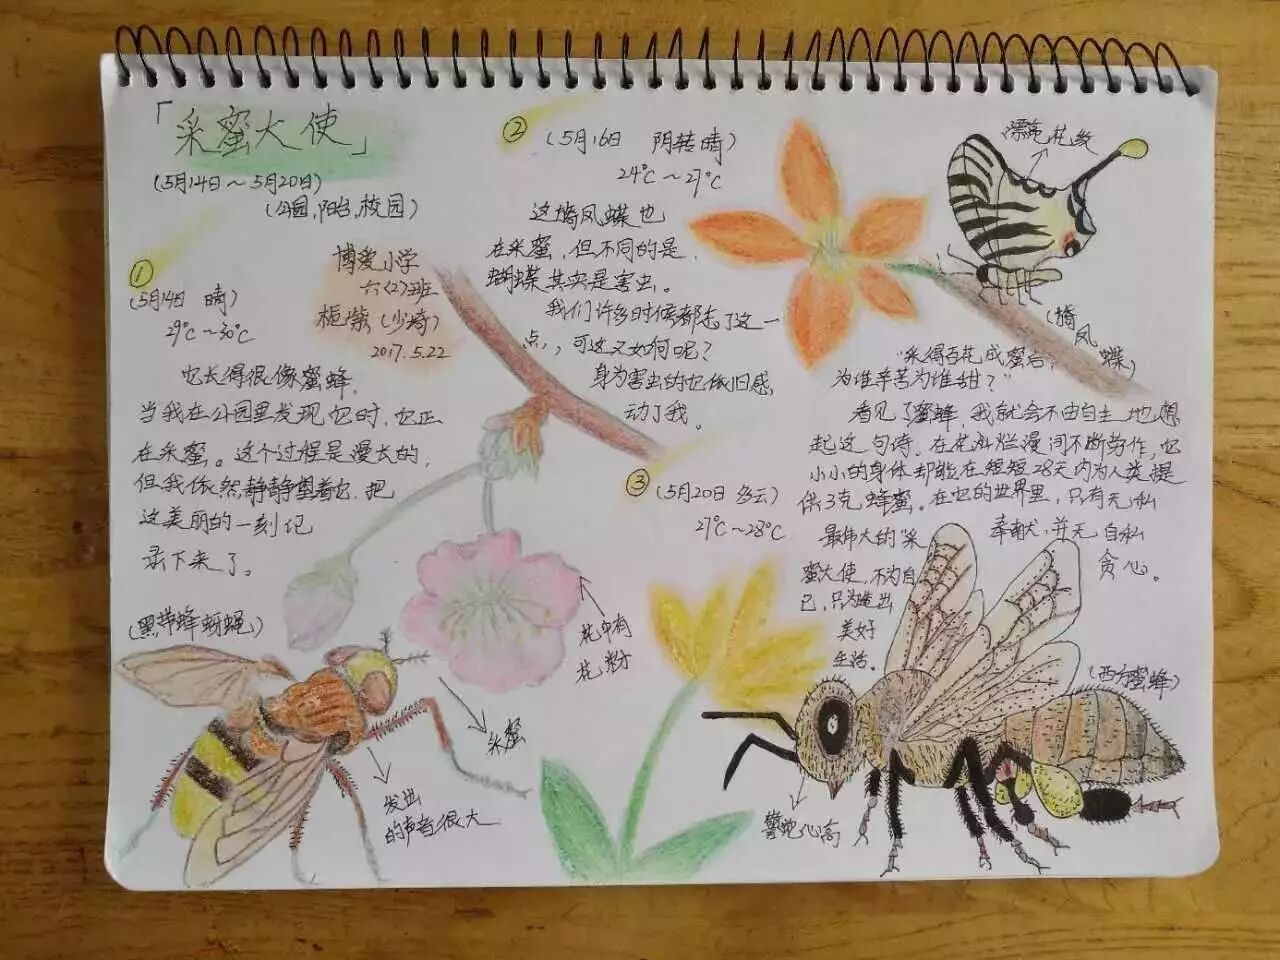 「采蜜大使」
(5月14日～5月20日)
(公园,阳台,校园)
博爱小学
六(2)班
(少崎)
2017.5.22
①
(5月14日 晴)
29℃～30℃
它长得很像蜜蜂,
当我在公园里发现它时,它正
在采蜜。这个过程是漫长的,
但我依然静静望着它,把
这美丽的一刻记
录下来了。
(黑带蜂蚜蝇)
花中有
花粉
采蜜
发出
的声音很大
②
(5月16日 阴转晴)
24℃～27℃
这墒凤蝶也
在采蜜,但不同的是,
蝴蝶其实是害虫。
我们许多时候都忘了这一
点,,可这又如何呢?
身为害虫的它依旧感
动了我。
漂亮花纹
(墒凤蝶)
③
(5月20日 多云)
27℃～28℃
"采得百花成蜜后,
为谁辛苦为谁甜?"
看见了蜜蜂,我就会不由自主地想
起这句诗。在花丛烂漫间不断劳作,它
小小的身体却能在短短28天内为人类提
供3克蜂蜜。在它的世界里,只有无私
奉献,并无自私
贪心。
最伟大的"采
蜜大使,不为自
己,只为
美好
生活。
(西方蜜蜂)
警蛇心高